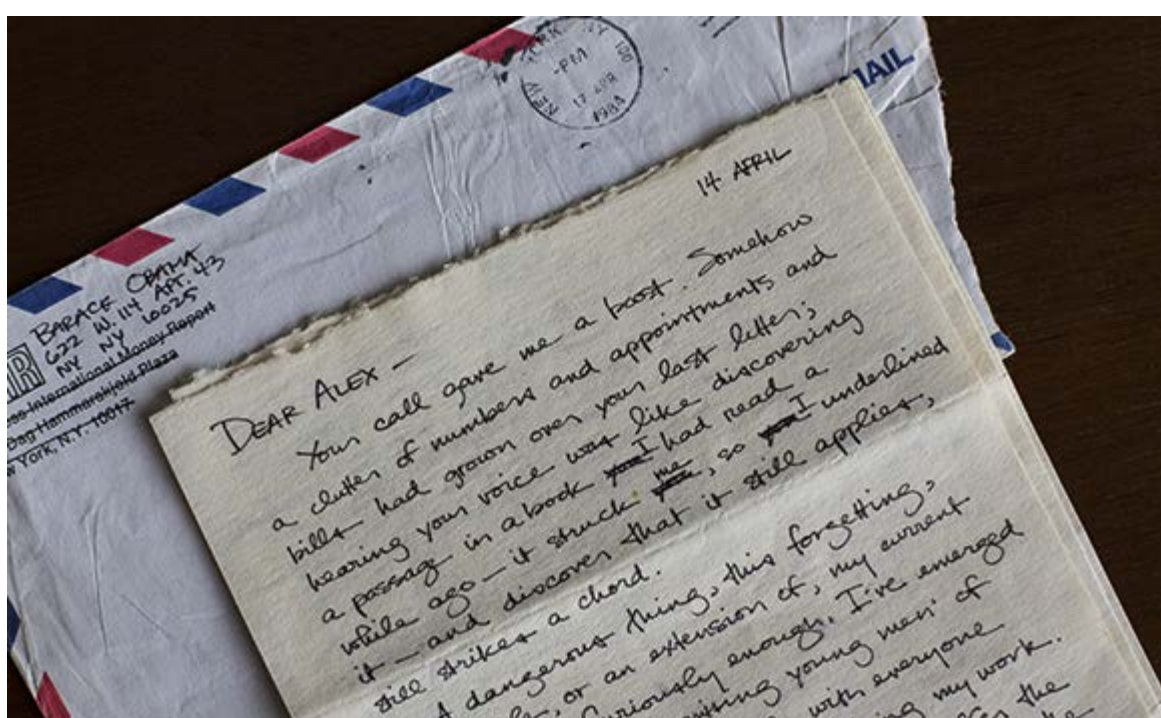 NEW YORK, NY 100
-PM
17 APR
1984
MAIL
BARACK OBAMA
622 W. 114 APT. 43
NY NY 10025
International Money Report
Dag Hammarskjold Plaza
New York, N.Y. 10017
14 APRIL
DEAR ALEX —
Your call gave me a boost. Somehow
a clutter of numbers and appointments and
bills had grown over your last letter;
hearing your voice was like discovering
a passage in a book you I had read a
while ago — it struck you me, so you I underlined
it — and discover that it still applies,
still strikes a chord.
A dangerous thing, this forgetting,
or an extension of, my current
Curiously enough, I've emerged
young men' of
with everyone
my work.
the